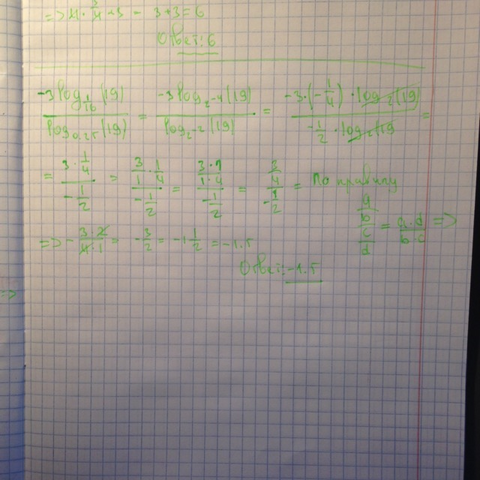 => 4 · 3/4 + 3 = 3+3=6
Ответ: 6
-3log_{1/16}(19) / log_{0.25}(19) = -3log_{2^{-4}}(19) / log_{2^{-2}}(19) = -3·(-1/4)·log_2(19) / -1/2·log_2(19) =
= 3·1/4 / -1/2 = 3/1·1/4 / -1/2 = 3·1/1·4 / -1/2 = 3/4 / -1/2 = По правилу a/b / c/d = a·d/b·c =>
=> -3·2/4·1 = -3/2 = -1 1/2 = -1.5
Ответ: -1.5
=>